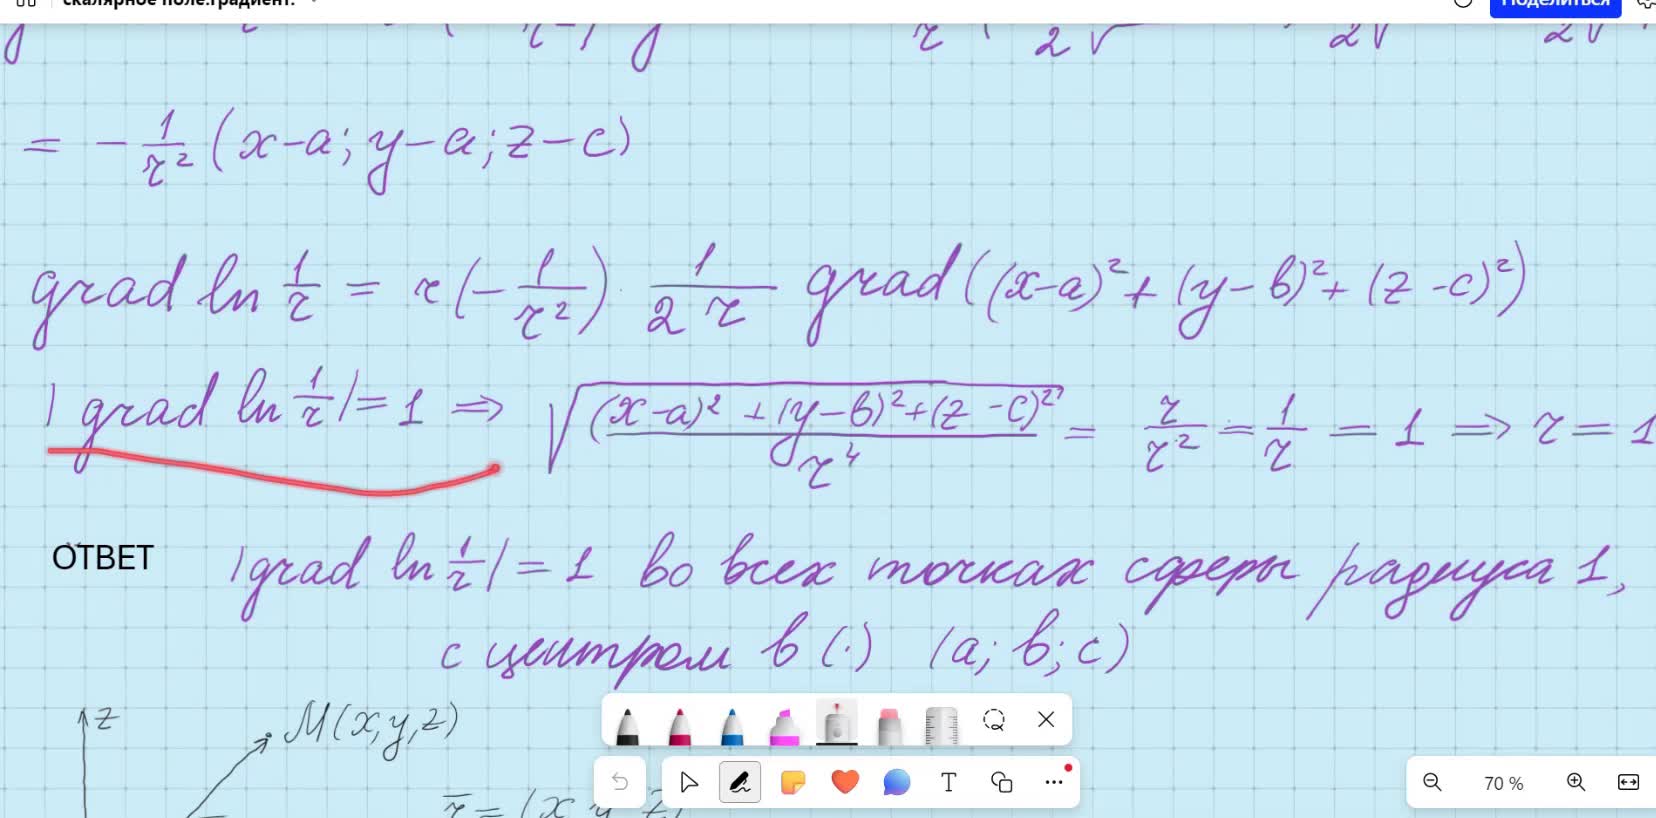 скалярное поле.градиент.
Поделиться
= - 1/r² (x-a; y-a; z-c)
grad ln 1/r = r(- 1/r²) · 1/2r grad((x-a)²+(y-b)²+(z-c)²)
|grad ln 1/r| = 1 ⇒ √((x-a)²+(y-b)²+(z-c)²/r⁴) = r/r² = 1/r = 1 ⇒ r = 1
ОТВЕТ |grad ln 1/r| = 1 во всех точках сферы радиуса 1,
с центром в (·) (a; b; c)
z M(x,y,z)
70 %